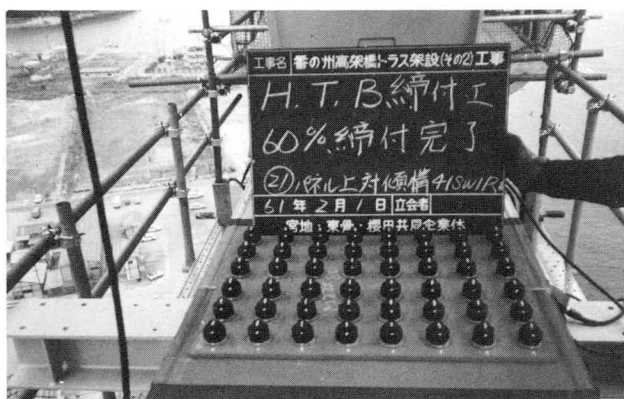 工事名 番の州高架橋トラス架設(その2)工事
H.T.B.締付工
60%締付完了
㉑パネル上対傾構41SW1R
61年2月1日 立会者
宮地・東骨・櫻田共同企業体